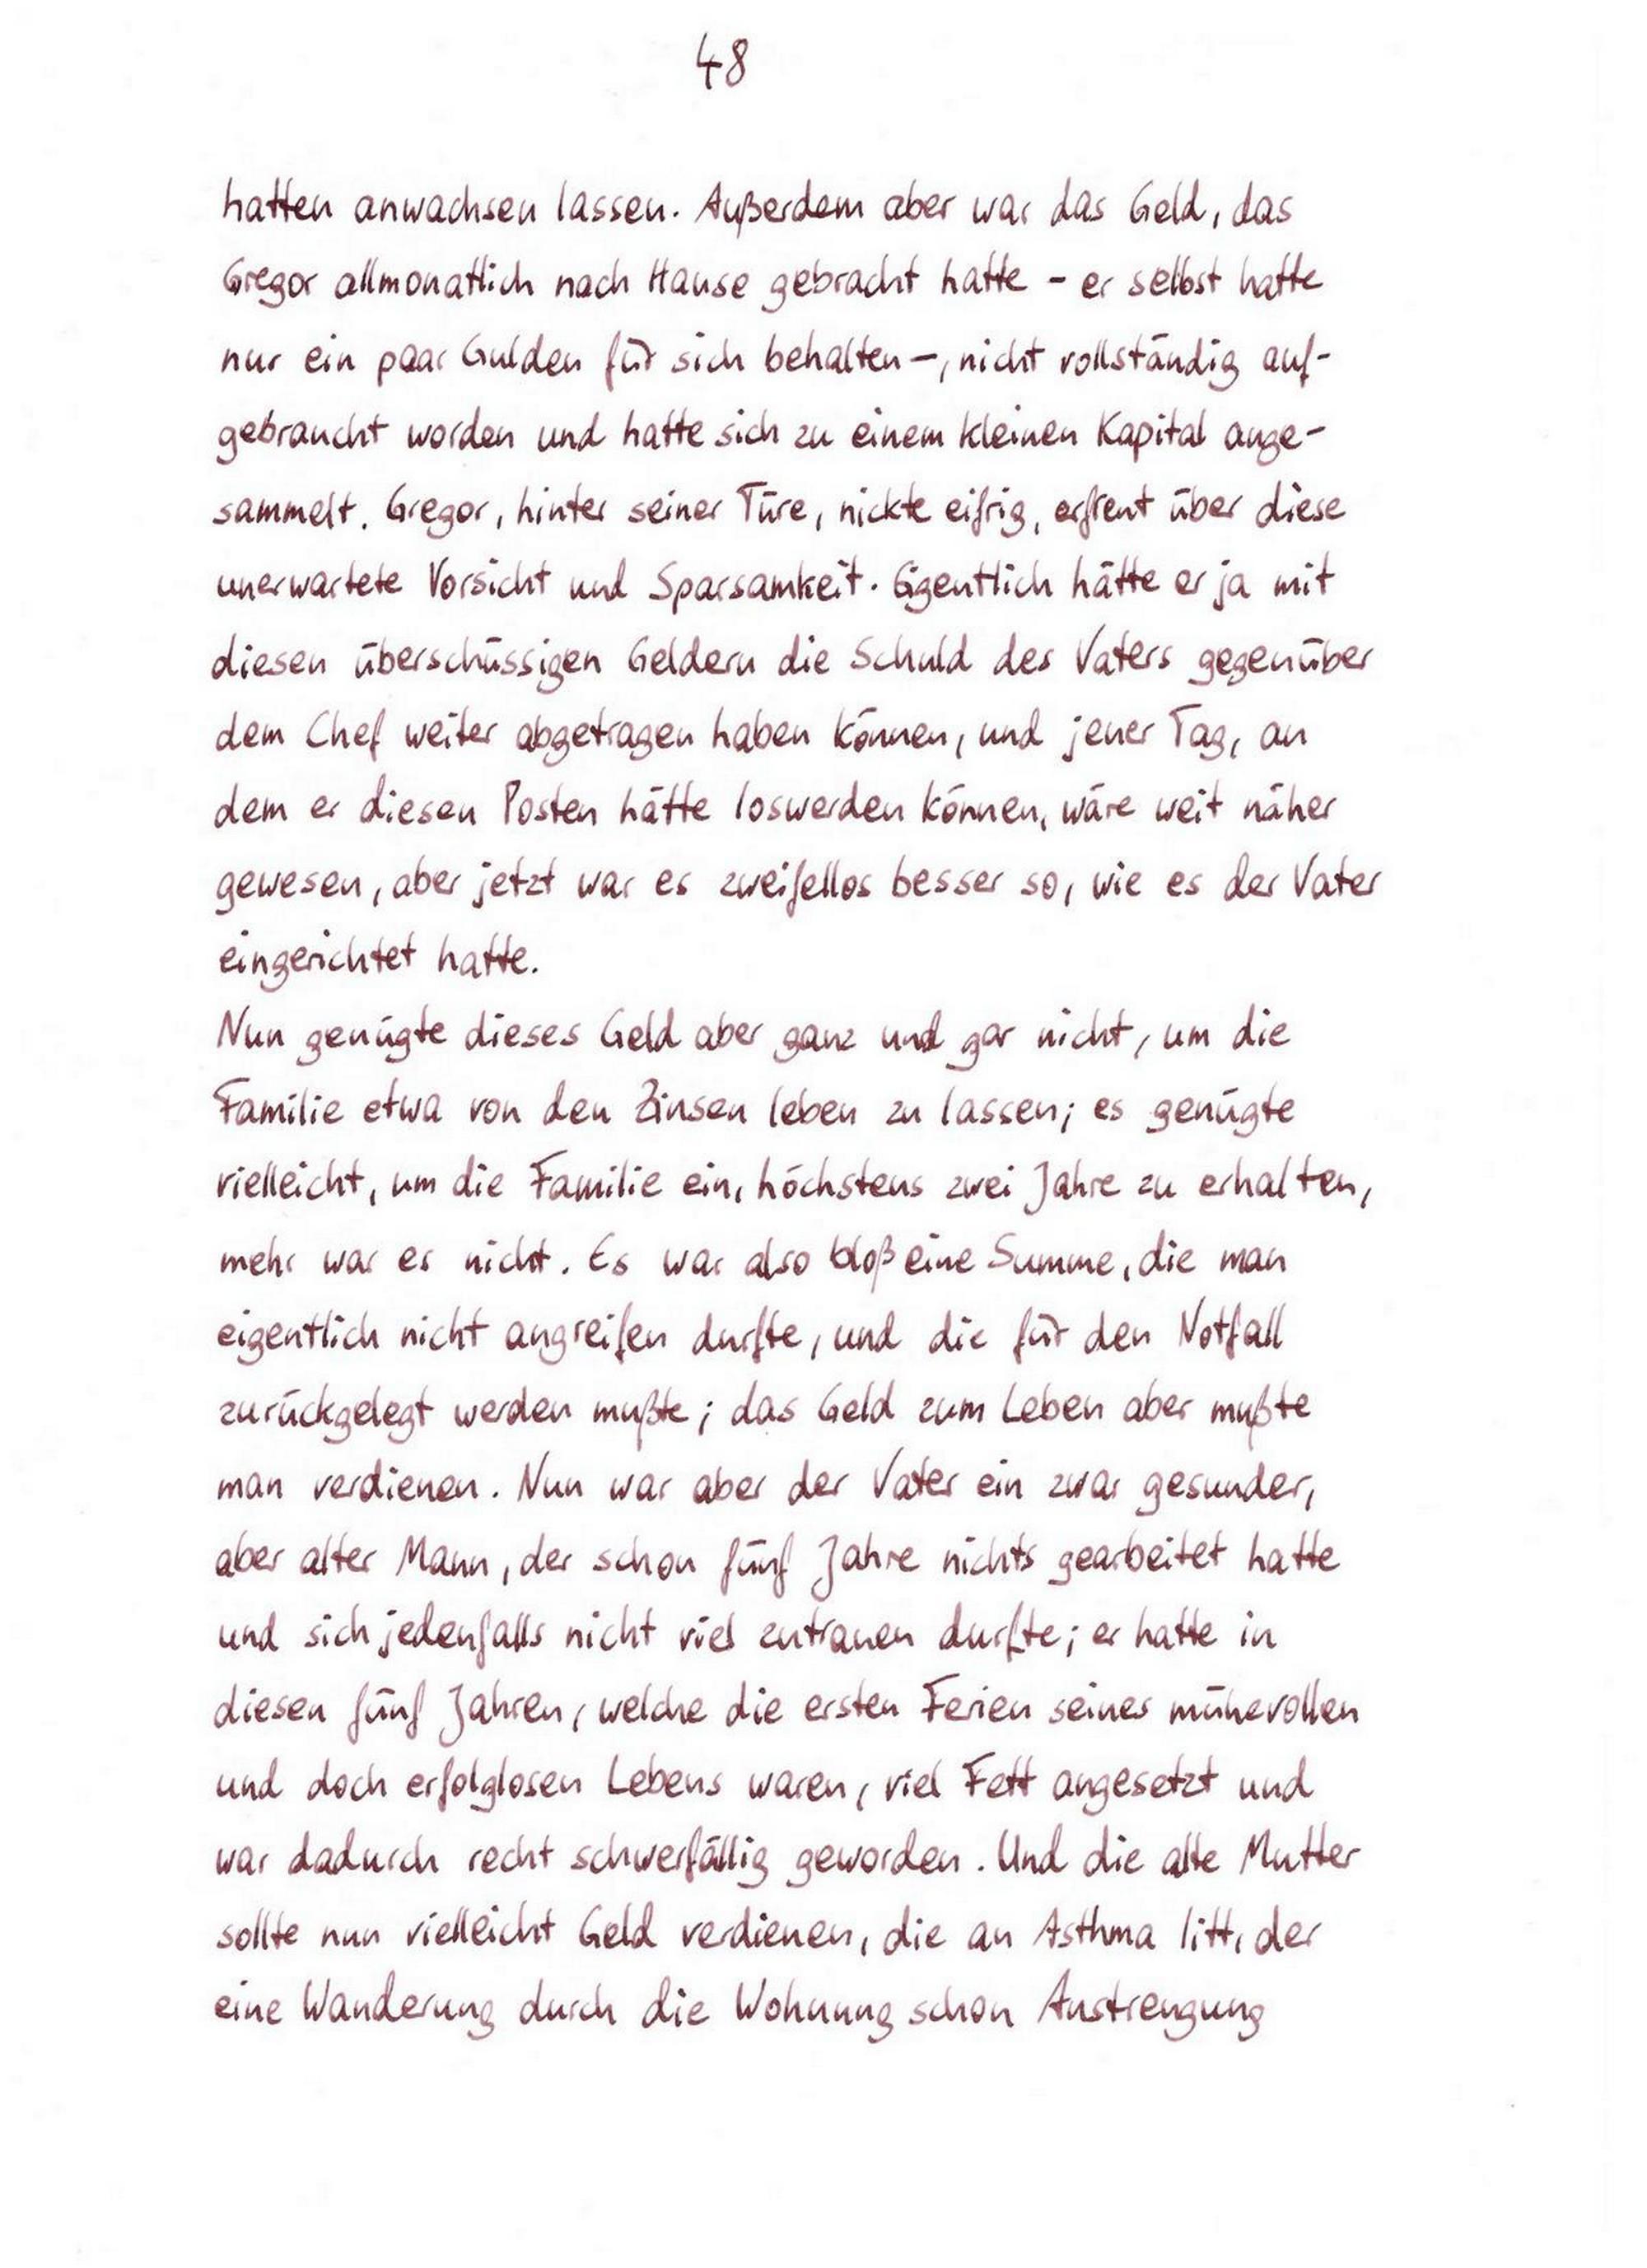 48
hatten anwachsen lassen. Außerdem aber war das Geld, das
Gregor allmonatlich nach Hause gebracht hatte – er selbst hatte
nur ein paar Gulden für sich behalten –, nicht vollständig auf-
gebraucht worden und hatte sich zu einem kleinen Kapital ange-
sammelt. Gregor, hinter seiner Türe, nickte eifrig, erfreut über diese
unerwartete Vorsicht und Sparsamkeit. Eigentlich hätte er ja mit
diesen überschüssigen Geldern die Schuld des Vaters gegenüber
dem Chef weiter abgetragen haben können, und jener Tag, an
dem er diesen Posten hätte loswerden können, wäre weit näher
gewesen, aber jetzt war es zweifellos besser so, wie es der Vater
eingerichtet hatte.
Nun genügte dieses Geld aber ganz und gar nicht, um die
Familie etwa von den Zinsen leben zu lassen; es genügte
vielleicht, um die Familie ein, höchstens zwei Jahre zu erhalten,
mehr war es nicht. Es war also bloß eine Summe, die man
eigentlich nicht angreifen durfte, und die für den Notfall
zurückgelegt werden mußte; das Geld zum Leben aber mußte
man verdienen. Nun war aber der Vater ein zwar gesunder,
aber alter Mann, der schon fünf Jahre nichts gearbeitet hatte
und sich jedenfalls nicht viel zutrauen durfte; er hatte in
diesen fünf Jahren, welche die ersten Ferien seines mühevollen
und doch erfolglosen Lebens waren, viel Fett angesetzt und
war dadurch recht schwerfällig geworden. Und die alte Mutter
sollte nun vielleicht Geld verdienen, die an Asthma litt, der
eine Wanderung durch die Wohnung schon Anstrengung